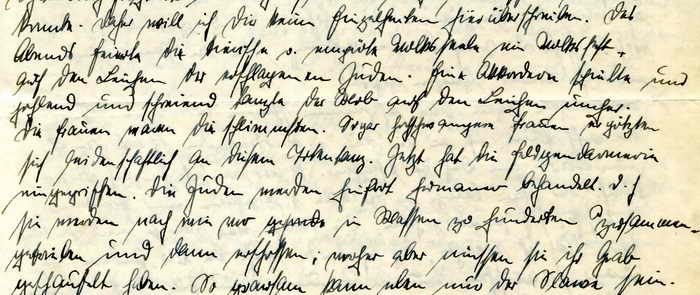 konnte. Daher will ich Dir keine Einzelheiten hierüber schreiben. Des
Abends feierte die deutsche u. empörte Volksseele ein Volksfest,
auf den Leichen der erschlagenen Juden. Eine Akkordeon spielte und
johlend und schreiend tanzte der Mob auf den Leichen umher.
Die Frauen waren die schlimmsten. Sogar hochschwangere Frauen ergötzten
sich leidenschaftlich an diesem Totentanz. Jetzt hat die Feldgendarmerie
eingegriffen. Die Juden werden hierort humaner behandelt. d.h
sie werden nach wie vor in Massen zu hunderten zusammen-
getrieben und dann erschossen; vorher aber müssen sie ihr Grab
geschaufelt haben. So grausam kann eben nur der Slawe sein.